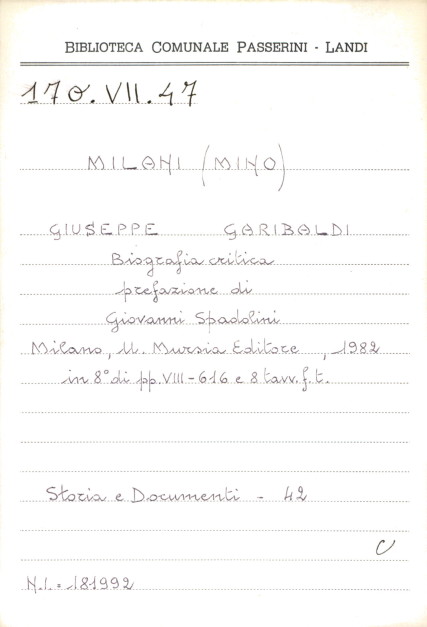 BIBLIOTECA COMUNALE PASSERINI - LANDI
170.VII.47
MILANI (MINO)
GIUSEPPE GARIBALDI
Biografia critica
prefazione di
Giovanni Spadolini
Milano, U. Mursia Editore , 1982
in 8° di pp. VIII - 616 e 8 tavv. f. t.
Storia e Documenti - 42
C
N.I. = 181992